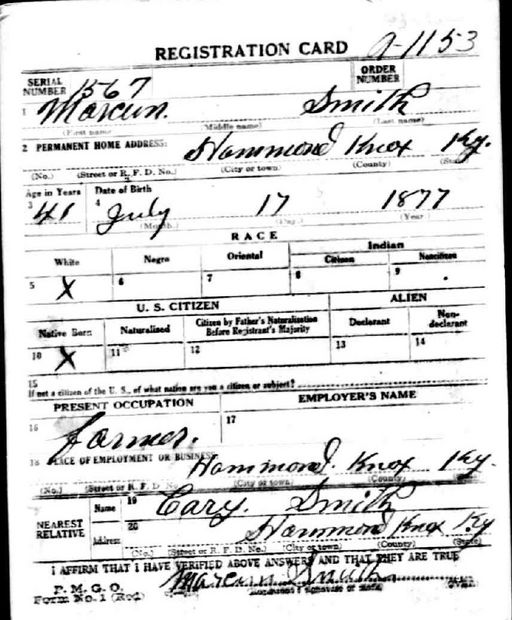 REGISTRATION CARD A-1153
SERIAL NUMBER 1567 ORDER NUMBER
1 Marcun. Smith
(First name) (Middle name) (Last name)
2 PERMANENT HOME ADDRESS: Hammond Knox Ky.
(No.) (Street or R. F. D. No.) (City or town) (County) (State)
Age in Years Date of Birth
3 41 4 July 17 1877
(Month.) (Day.) (Year.)
RACE
White Negro Oriental Indian
Citizen Noncitizen
5 X 6 7 8 9
U. S. CITIZEN ALIEN
Native Born Naturalized Citizen by Father's Naturalization Before Registrant's Majority Declarant Non-declarant
10 X 11 12 13 14
15
If not a citizen of the U. S., of what nation are you a citizen or subject?
PRESENT OCCUPATION EMPLOYER'S NAME
16 farmer. 17
18 PLACE OF EMPLOYMENT OR BUSINESS Hammond. Knox Ky.
(No.) (Street or R. F. D. No.) (County)
NEAREST RELATIVE Name 19 Cary. Smith
Address 20 Hammond Knox Ky
(No.) (Street or R. F. D. No.) (City or town) (County) (State)
I AFFIRM THAT I HAVE VERIFIED ABOVE ANSWERS AND THAT THEY ARE TRUE
P. M. G. O.
Form No. 1 (Red) Marcun Smith